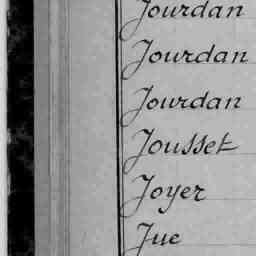 Jourdan
Jourdan
Jourdan
Jousset
Joyer
Juc